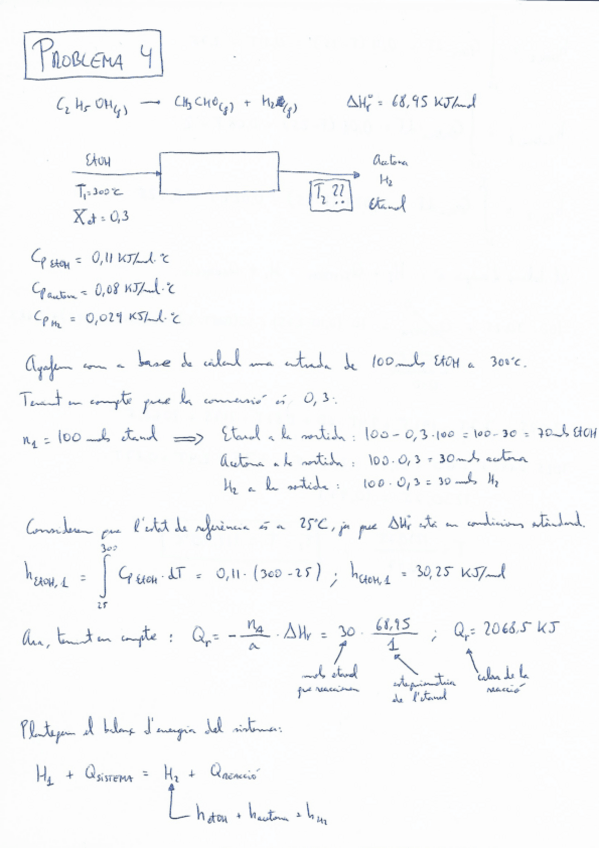 PROBLEMA 4
C2H5OH(g) → CH3CHO(g) + H2(g) ΔHr° = 68,95 KJ/mol
EtOH
T1=300°C
Xet = 0,3
T2 ??
H2
Etanol
CpEtOH = 0,11 KJ/mol·°C
Cpacetona = 0,08 KJ/mol·°C
CpH2 = 0,029 KJ/mol·°C
Agafem com a base de càlcul una entrada de 100 mols EtOH a 300°C.
Tenint en compte que la conversió és 0,3:
n1 = 100 mols etanol ⟹ Etanol a la sortida: 100 - 0,3·100 = 100-30 = 70 mols EtOH
Acetona a la sortida: 100·0,3 = 30 mols acetona
H2 a la sortida: 100·0,3 = 30 mols H2
Considerem que l'estat de referència és a 25°C, ja que ΔHr està en condicions estàndard.
hEtOH,1 = ∫25^300 CpEtOH·dT = 0,11·(300-25) ; hEtOH,1 = 30,25 KJ/mol
Ara, tenint en compte: Qr = - nA/a · ΔHr = 30 · 68,95/1 ; Qr = 2068,5 KJ
mols etanol que reaccionen
estequiometria de l'etanol
calor de la reacció
Plantegem el balanç d'energia del sistema:
H1 + QSISTEMA = H2 + QREACCIÓ
hetOH + hacetona + hH2